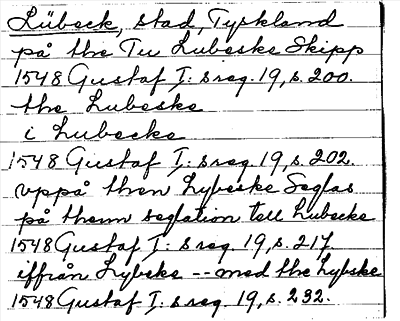 Lübeck, stad, Tyskland
på the Tu Lubeske Skipp
1548 Gustaf I: s reg. 19, s. 200.
the Lubeske
i Lubecke
1548 Gustaf I: s reg. 19, s. 202.
vppå then Lybeske Seglas
på thenn seglation tell Lubecke
1548 Gustaf I: s reg. 19, s. 217
iffrån Lybeke -- med the Lybske
1548 Gustaf I: s reg. 19, s. 232.